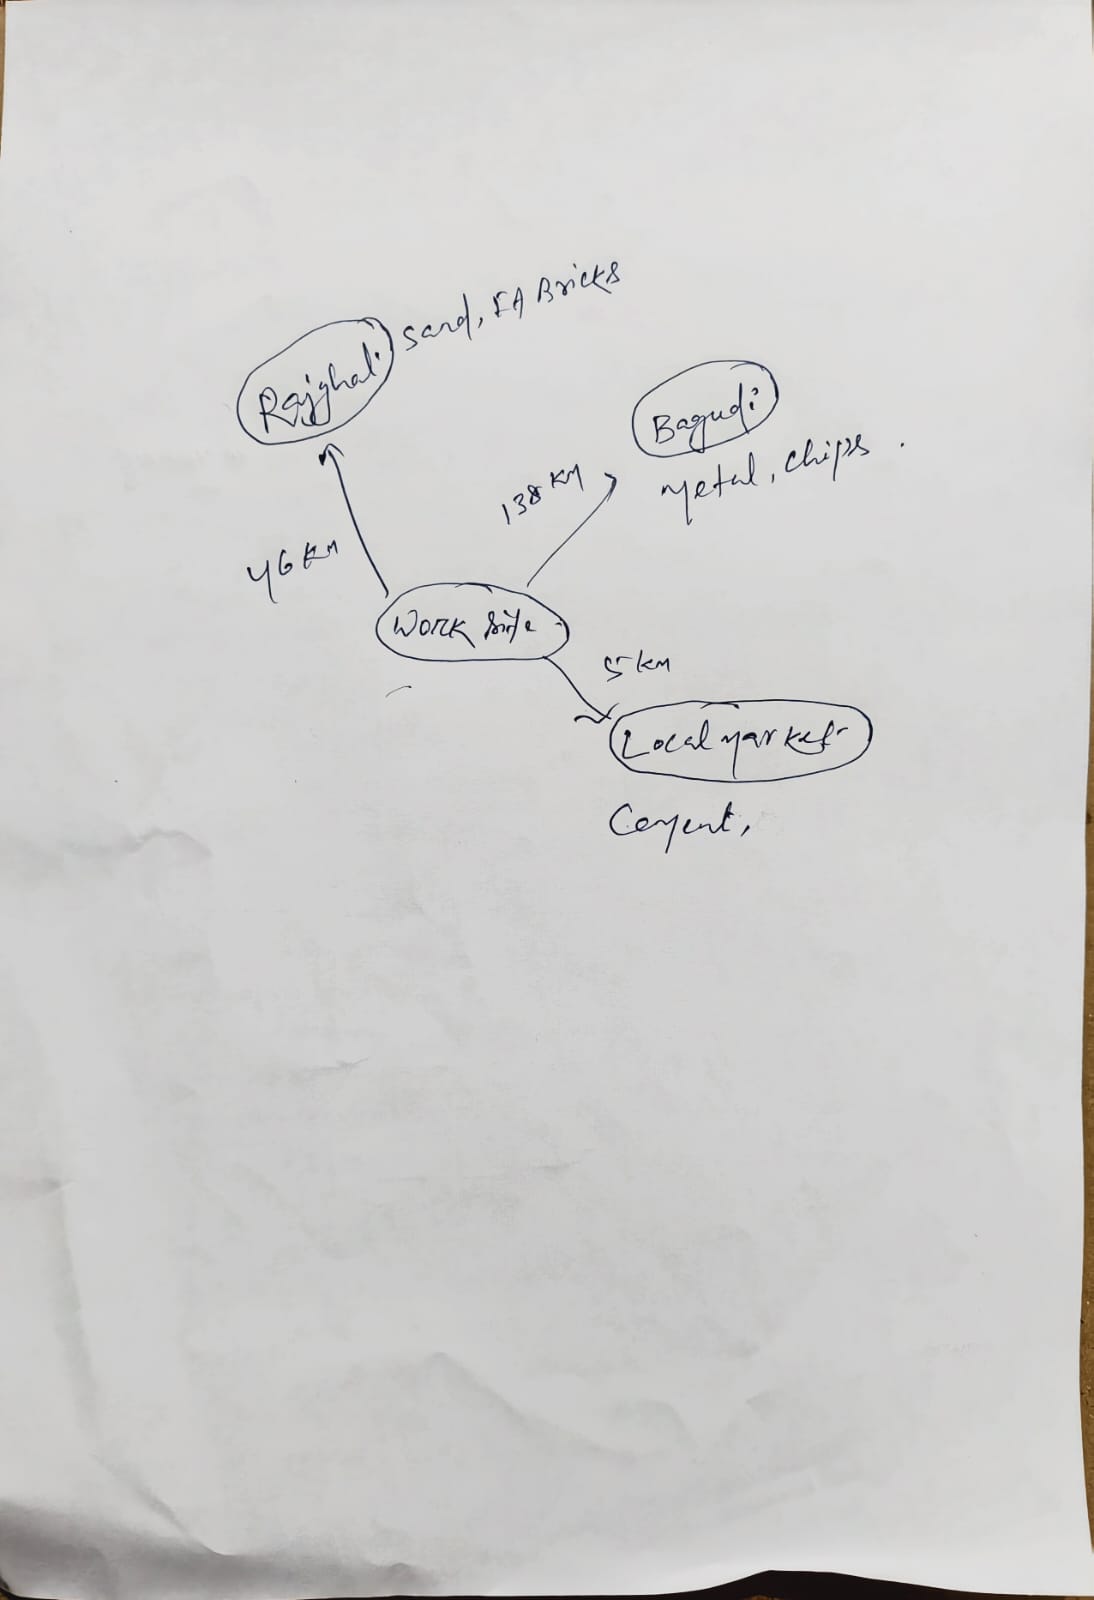 Sand, FA Bricks
Rajghat
Bagudi
Metal, chips.
138 KM
46 KM
Work site
5 KM
Local market
Cement,